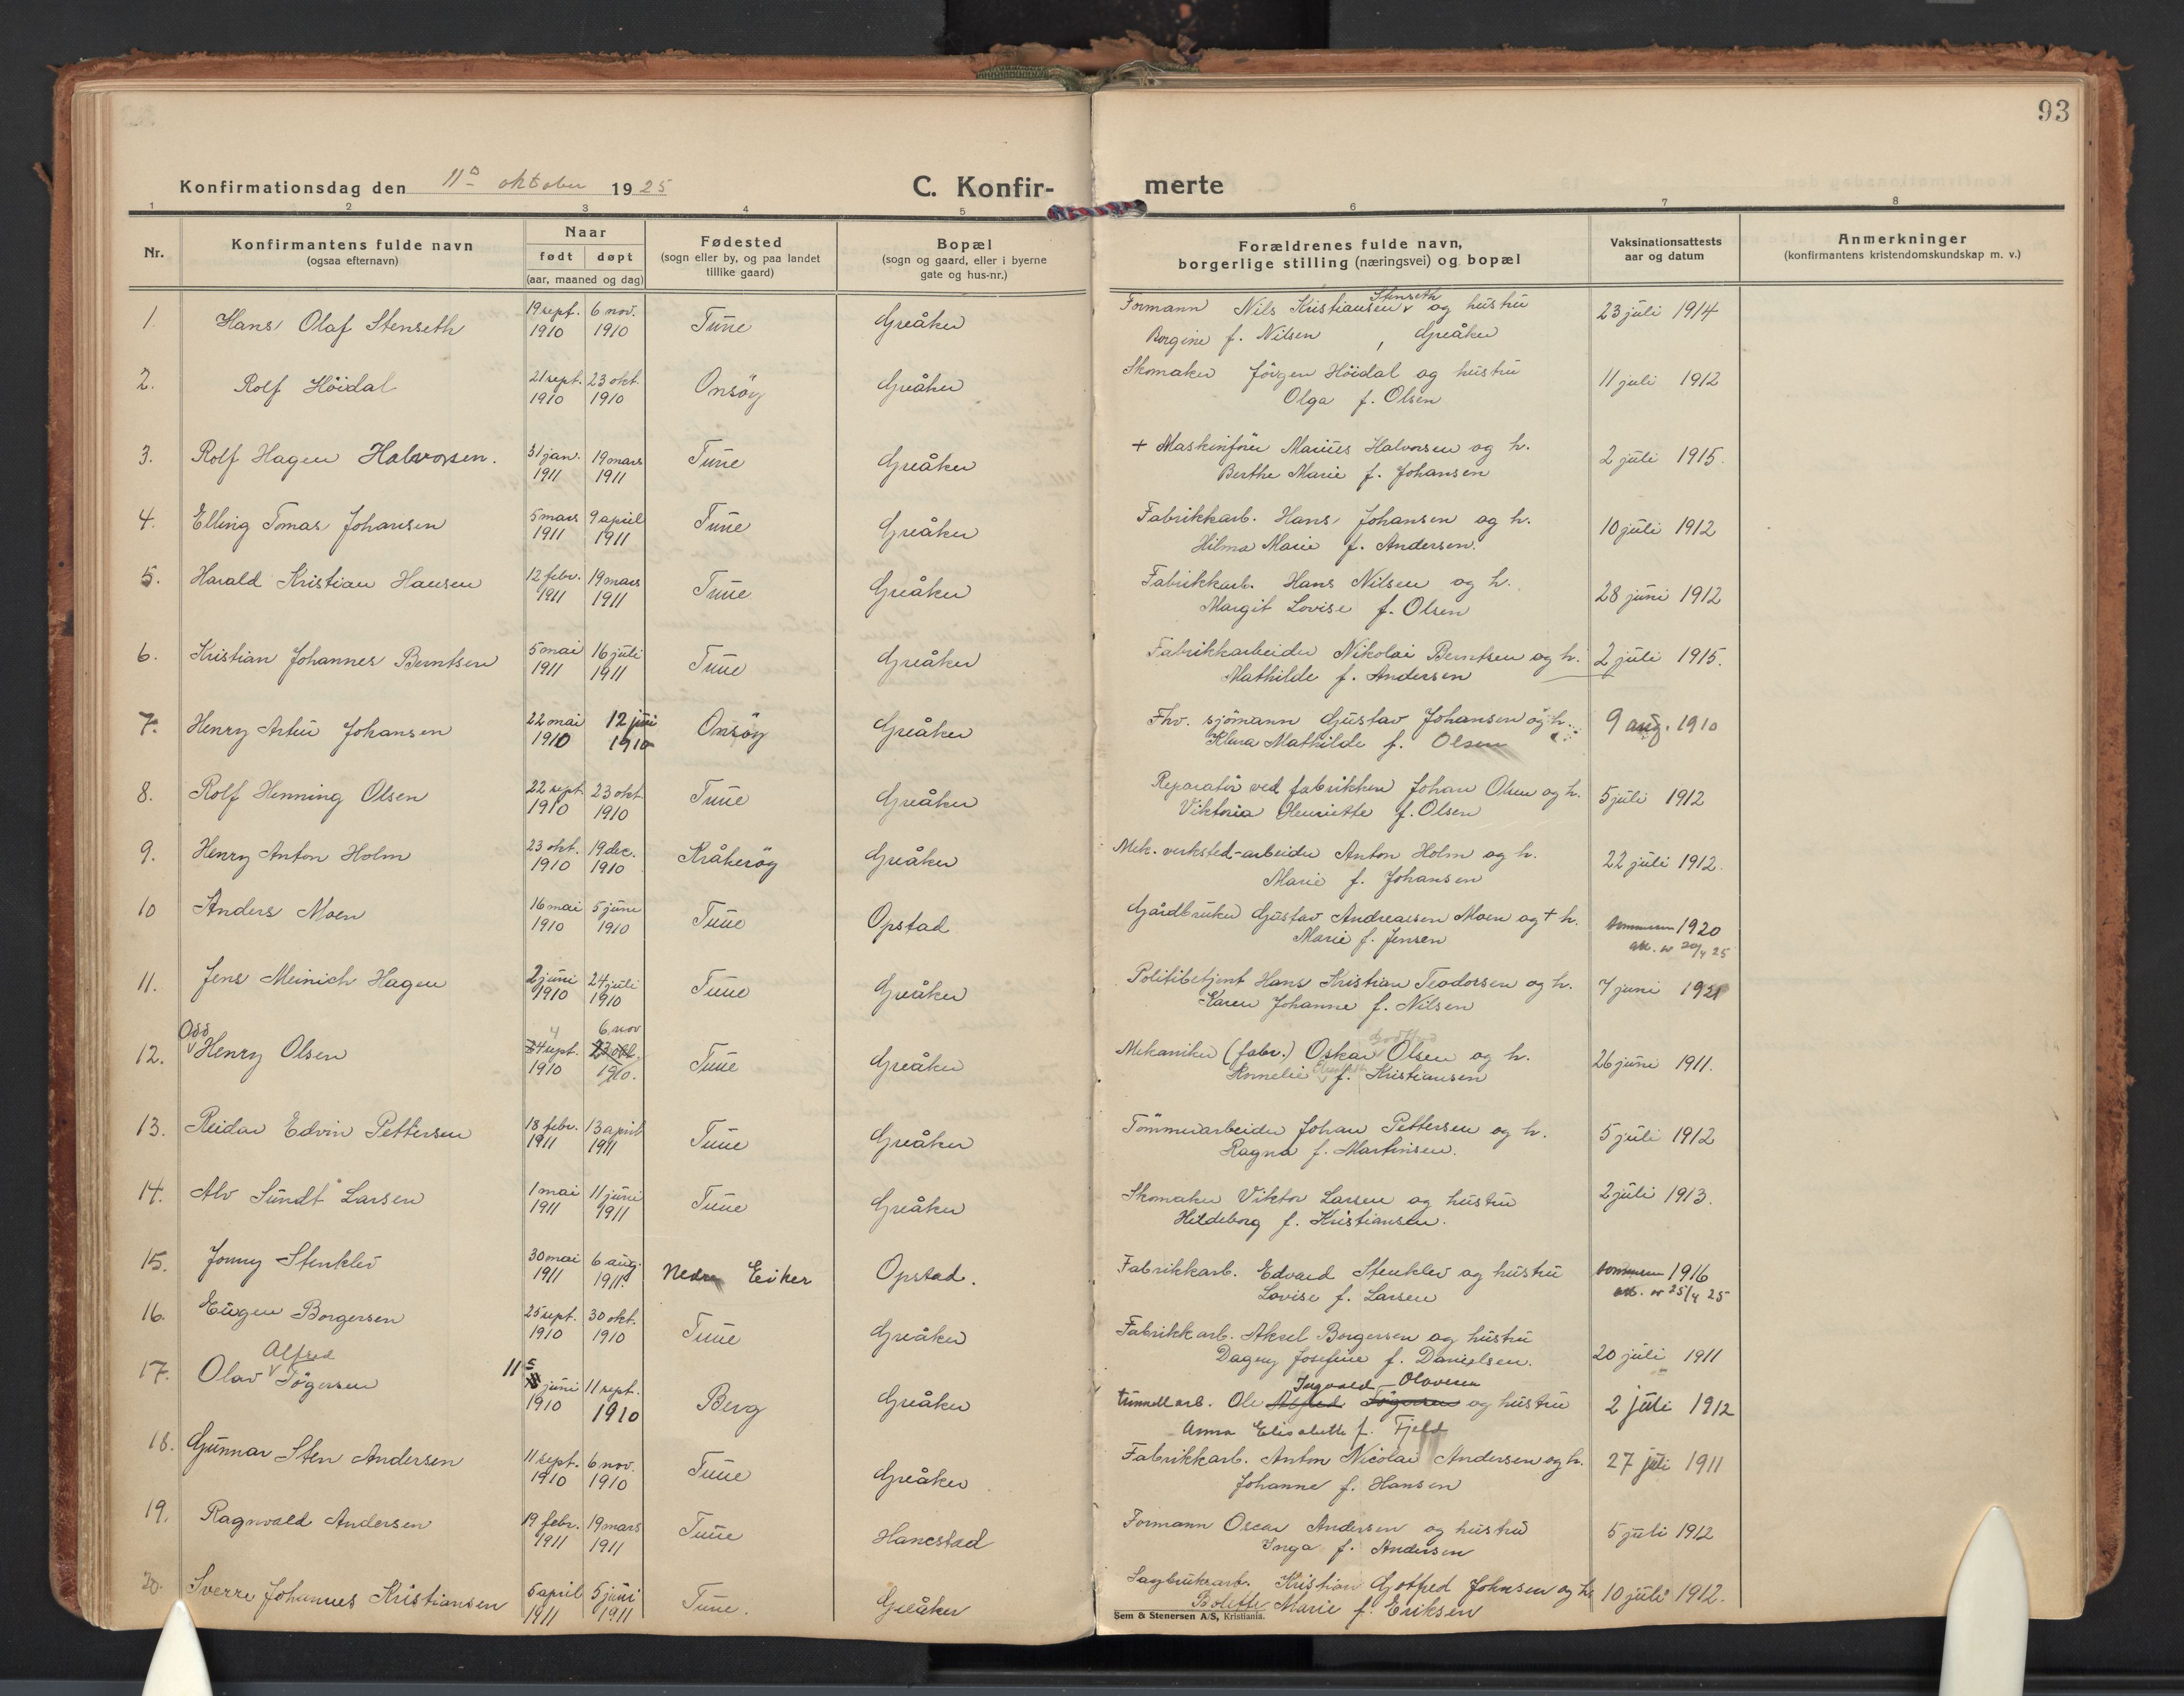 93
Konfirmationsdag den 11 oktober 1925
C. Konfir- merte
1 2 3 4 5 6 7 8
Nr.
Konfirmantens fulde navn
(ogsaa efternavn)
Naar
født døpt
(aar, maaned og dag)
Fødested
(sogn eller by, og paa landet
tillike gaard)
Bopæl
(sogn og gaard, eller i byerne
gate og hus-nr.)
Forældrenes fulde navn,
borgerlige stilling (næringsvei) og bopæl
Vaksinationsattests
aar og datum
Anmerkninger
(konfirmantens kristendomskundskap m. v.)
1. Hans Olaf Stenseth 19 sept. 1910 6 nov. 1910 Tune Greåker Formann Nils Kristiansen Stenseth og hustru
Borgine f. Nilsen, Greåker 23 juli 1914
2. Rolf Höidal 21 sept. 1910 23 okt. 1910 Onsöy Greåker Skomaker Jörgen Höidal og hustru
Olga f. Olsen 11 juli 1912
3. Rolf Hagen Halvorsen. 31 jan. 1911 19 mars 1911 Tune Greåker + Maskinförer Marius Halvorsen og h.
Berthe Marie f. Johansen 2 juli 1915.
4. Elling Tomas Johansen 5 mars 1911 9 april 1911 Tune Greåker Fabrikkarb. Hans Johansen og h.
Hilma Marie f. Andersen. 10 juli 1912
5. Harald Kristian Hansen 12 febr. 1911 19 mars 1911 Tune Greåker Fabrikkarb. Hans Nilsen og h.
Margit Lovise f. Olsen 28 juni 1912
6. Kristian Johannes Berntsen 5 mai 1911 16 juli 1911 Tune Greåker Fabrikkarbeider Nikolai Berntsen og h.
Mathilde f. Andersen 2 juli 1915.
7. Henry Artur Johansen 22 mai 1910 12 juni 1910 Onsöy Greåker Fhv. sjömann Gustav Johansen og h.
Klara Mathilde f. Olsen 9 aug. 1910
8. Rolf Henning Olsen 22 sept. 1910 23 okt. 1910 Tune Greåker Reparatör ved fabrikken Johan Olsen og h.
Viktoria Henriette f. Olsen 5 juli 1912
9. Henry Anton Holm 23 okt. 1910 19 dec. 1910 Kråkeröy Greåker Mek. verksted-arbeider Anton Holm og h.
Marie f. Johansen 22 juli 1912.
10 Anders Moen 16 mai 1910 5 juni 1910 Tune Opstad Gårdbruker Gustav Andreassen Moen og + h.
Marie f. Jensen sommeren 1920
att. av 20/4 25
11. Jens Meinich Hagen 2 juni 1910 24 juli 1910 Tune Greåker Politibetjent Hans Kristian Teodorsen og h.
Karen Johanne f. Nilsen 7 juni 1921
12. Odd Henry Olsen 4 sept. 1910 6. nov 23 okt. 1910. Tune Greåker Mekaniker (fabr.) Oskar Godtfred Olsen og h.
Kornelie f. Kristiansen 26 juni 1911.
13. Reidar Edvin Pettersen 18 febr. 1911 13 april 1911 Tune Greåker Tömmerarbeider Johan Pettersen og h.
Ragna f. Martinsen. 5 juli 1912
14. Alv Sundt Larsen 1 mai 1911 11 juni 1911 Tune Greåker Skomaker Viktor Larsen og hustru
Hildeborg f. Kristiansen. 2 juli 1913.
15. Jonny Stenklev 30 mai 1911 6 aug. 1911 Nedre Eiker Opstad. Fabrikkarb. Edvard Stenklev og hustru
Lovise f. Larsen sommeren 1916
att. av 25/4 25
16. Eugen Borgersen 25 sept. 1910 30 okt. 1910 Tune Greåker Fabrikkarb. Aksel Borgersen og hustru
Dagny Josefine f. Danielsen. 20 juli 1911
17. Olav Alfred Tögersen 11 juni 1910 11 sept. 1910 Berg Greåker tunnellarb. Ole Alfred Tögersen Ingvald Olavesen og hustru
Anna Elisabeth f. Fjeld 2 juli 1912
18. Gunnar Sten Andersen 11 sept. 1910 6 nov. 1910 Tune Greåker Fabrikkarb. Anton Nicolai Andersen og h.
Johanne f. Hansen 27 juli 1911
19. Ragnvald Andersen 19 febr. 1911 19 mars 1911 Tune Hanestad Formann Oscar Andersen og hustru
Inga f. Andersen 5 juli 1912
20. Sverre Johannes Kristiansen 5 april 1911 5 juni 1911 Tune. Greåker Sagbruksarb. Kristian Gotfred Johnsen og h.
Bolette Marie f. Eriksen 10 juli 1912.
Sem & Stenersen A/S, Kristiania.